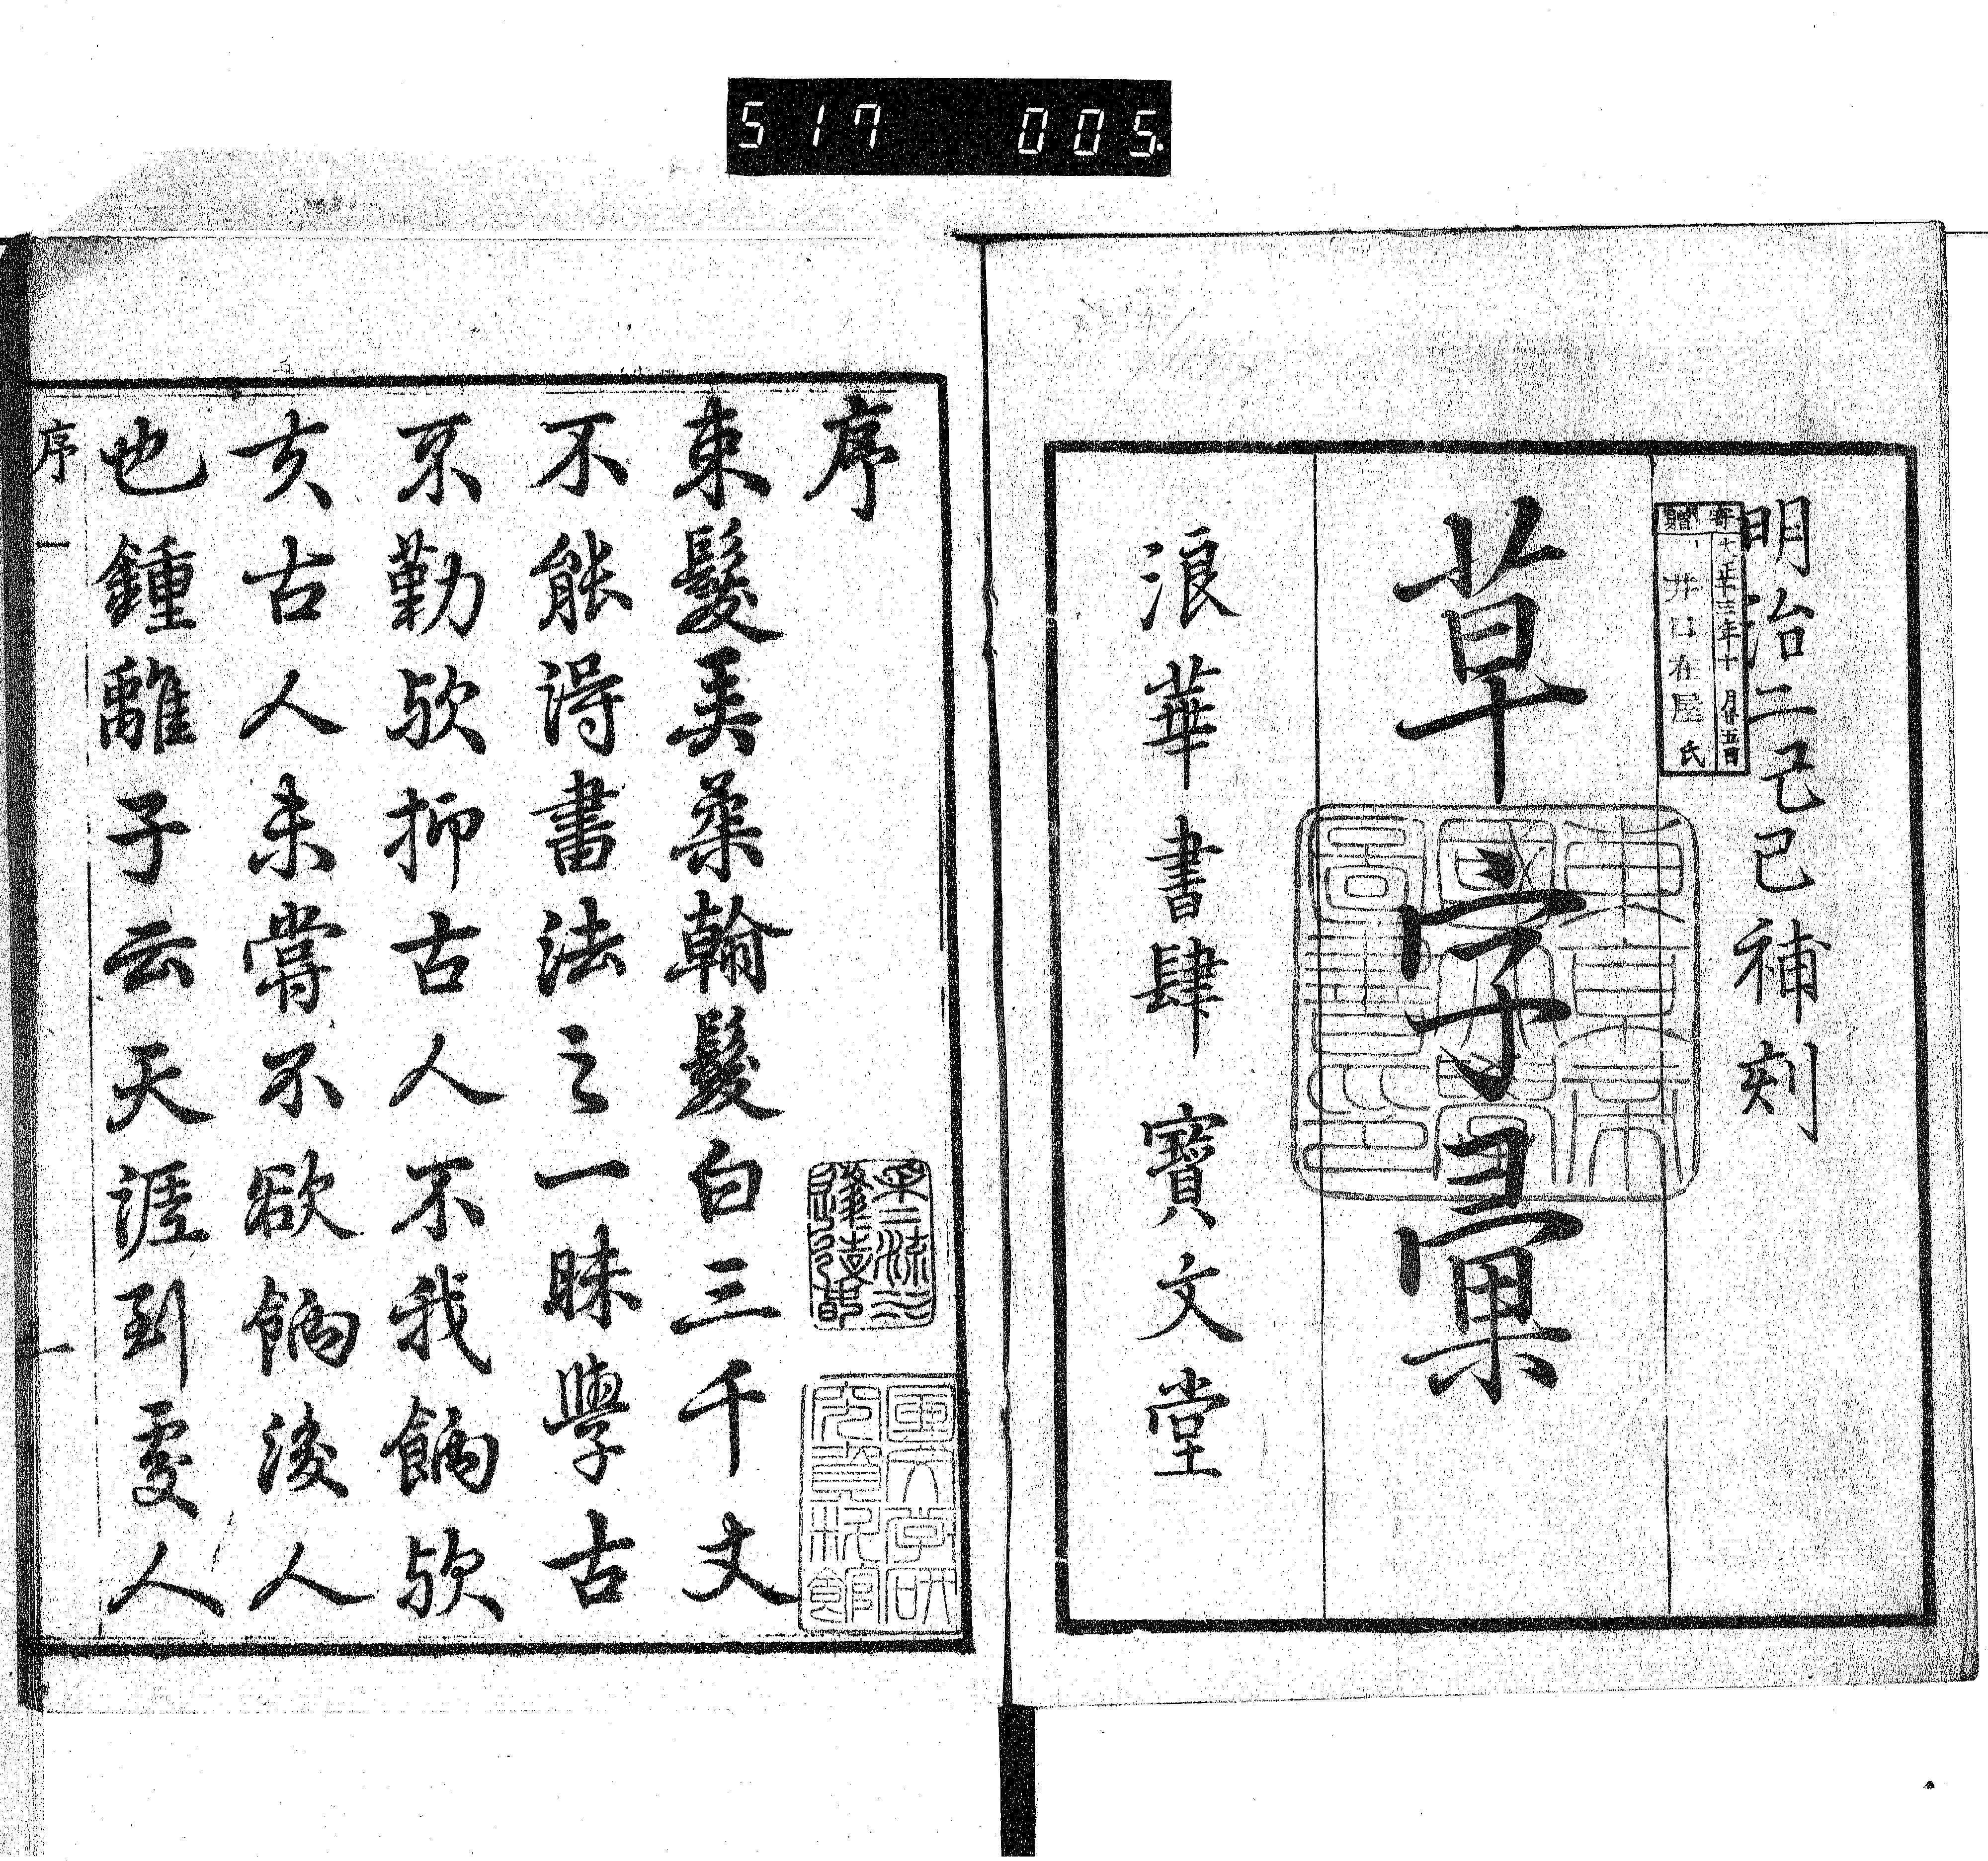 517 005
明治二己巳補刻
寄贈
大正十三年十月廿五日
井口在屋氏
草字彙
東京帝國大學圖書印
浪華書肆 寶文堂
序
國文学研究資料館
束髮弄柔翰髮白三千丈
不能淂書法之一昧學古
不勤欤抑古人不我餉欤
夫古人未嘗不欲餉後人
也鍾離子云天涯到處人
序一
一